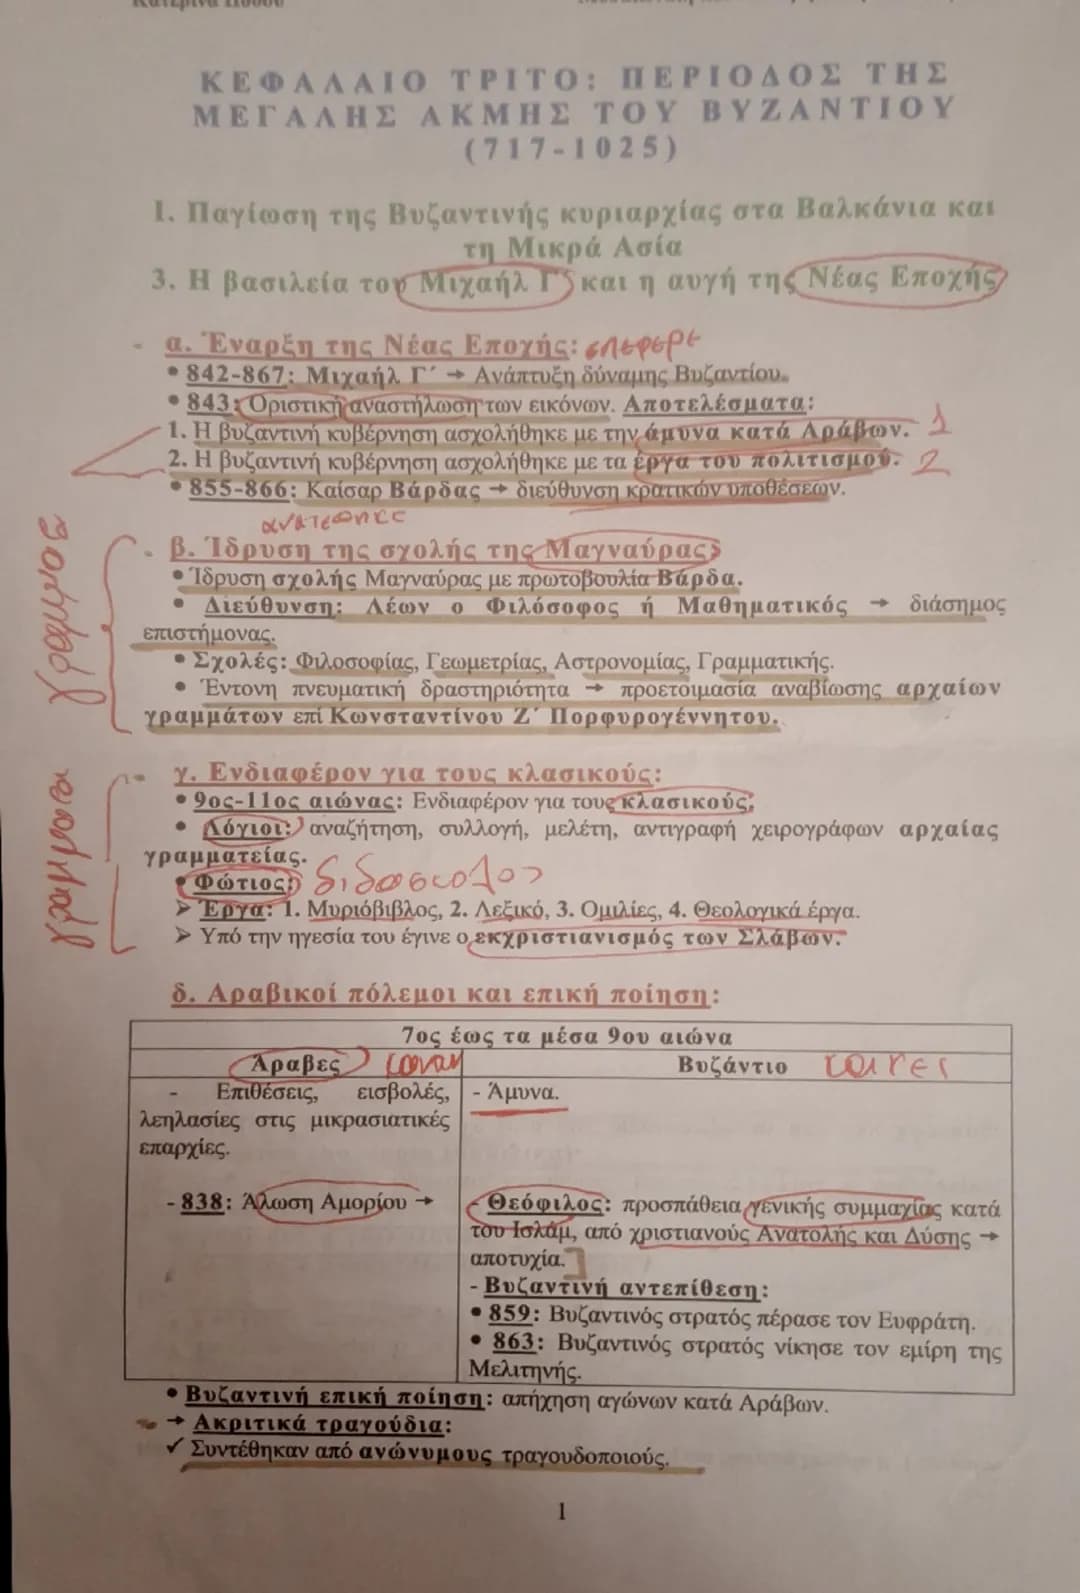 ΚΕΦΑΛΑΙΟ ΤΡΙΤΟ: ΠΕΡΙΟΔΟΣ ΤΗΣ
ΜΕΓΑΛΗΣ ΑΚΜΗΣ ΤΟΥ ΒΥΖΑΝΤΙΟΥ
(717-1025)
1. Παγίωση της Βυζαντινής κυριαρχίας στα Βαλκάνια και
τη Μικρά Ασία
3. Η βασιλεία του Μιχαήλ Γ΄ και η αυγή της Νέας Εποχής
α. Έναρξη της Νέας Εποχής:
• 842-867: Μιχαήλ Γ΄ → Ανάπτυξη δύναμης Βυζαντίου.
• 843: Οριστική αναστήλωση των εικόνων. Αποτελέσματα:
1. Η βυζαντινή κυβέρνηση ασχολήθηκε με την άμυνα κατά Αράβων. 1
2. Η βυζαντινή κυβέρνηση ασχολήθηκε με τα έργα του πολιτισμού. 2
• 855-866: Καίσαρ Βάρδας → διεύθυνση κρατικών υποθέσεων.
β. Ίδρυση της σχολής της Μαγναύρας:
• Ίδρυση σχολής Μαγναύρας με πρωτοβουλία Βάρδα.
• Διεύθυνση: Λέων ο Φιλόσοφος ή Μαθηματικός → διάσημος
επιστήμονας.
• Σχολές: Φιλοσοφίας, Γεωμετρίας, Αστρονομίας, Γραμματικής.
• Έντονη πνευματική δραστηριότητα → προετοιμασία αναβίωσης αρχαίων
γραμμάτων επί Κωνσταντίνου Ζ΄ Πορφυρογέννητου.
γ. Ενδιαφέρον για τους κλασικούς:
• 9ος-11ος αιώνας: Ενδιαφέρον για τους κλασικούς.
• Λόγιοι: αναζήτηση, συλλογή, μελέτη, αντιγραφή χειρογράφων αρχαίας
γραμματείας.
• Φώτιος: διδάσκαλος
➤ Έργα: 1. Μυριόβιβλος, 2. Λεξικό, 3. Ομιλίες, 4. Θεολογικά έργα.
➤ Υπό την ηγεσία του έγινε ο εκχριστιανισμός των Σλάβων.
δ. Αραβικοί πόλεμοι και επική ποίηση:
7ος έως τα μέσα 9ου αιώνα
Άραβες
Βυζάντιο
- Επιθέσεις, εισβολές,
λεηλασίες στις μικρασιατικές
επαρχίες.
- Άμυνα.
- 838: Άλωση Αμορίου →
- Θεόφιλος: προσπάθεια γενικής συμμαχίας κατά
του Ισλάμ, από χριστιανούς Ανατολής και Δύσης →
αποτυχία.
- Βυζαντινή αντεπίθεση:
• 859: Βυζαντινός στρατός πέρασε τον Ευφράτη.
• 863: Βυζαντινός στρατός νίκησε τον εμίρη της
Μελιτηνής.
• Βυζαντινή επική ποίηση: απήχηση αγώνων κατά Αράβων.
→ Ακριτικά τραγούδια:
✓ Συντέθηκαν από ανώνυμους τραγουδοποιούς.
1